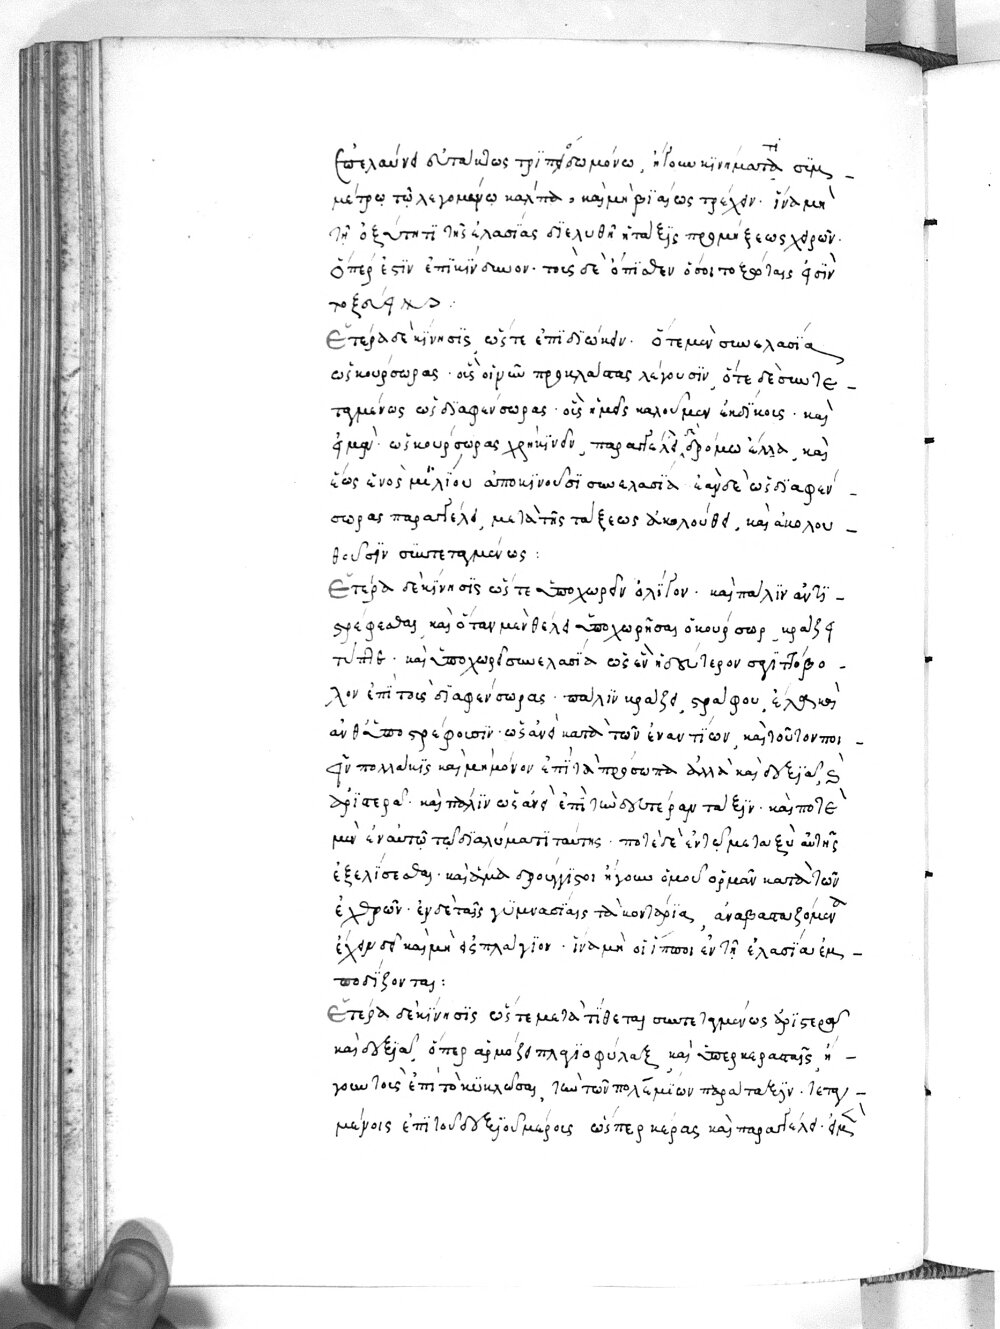 ἐπελαύνει εὐτάκτως τριποδωμόνω, ἤγουν κινήματί τινι συμ-
μέτρῳ τῷ λεγομένῳ κάλπα, καὶ μὴ βιαίως τρέχειν. ἵνα μὴ
τῇ ὀξύτητι τῆς ἐλασίας διελυθῇ ἡ τάξις πρὸ μίξεως χειρῶν.
ὅπερ ἐστὶν ἐπικίνδυνον. τοῖς δὲ ὄπισθεν ὅσοι τοξόται εἰσὶν
τοξεύειν:
Ἑτέρα δὲ κίνησις, ὥστε ἐπιδιώκειν. ὅτε μὲν σὺν ἐλασίᾳ
ὡς κούρσωρας. οὓς οἱ νῦν προκλάστας λέγουσιν, ὅτε δὲ συντε-
ταγμένως ὡς διαφένσωρας. οὓς ἡμεῖς καλοῦμεν ἐκδίκοις. καὶ
εἰ μὲν ὡς κούρσωρας χρὴ κινεῖν, παραγγέλλει, δρόμω ἔλλα, καὶ
ἕως ἑνὸς μιλίου ἀποκινοῦσι σὺν ἐλασίᾳ ἐὰν δὲ ὡς διαφέν-
σωρας παραγγέλει, μετὰ τῆς τάξεως ἀκολούθει, καὶ ἀκολου-
θοῦσιν συντεταγμένως:
Ἑτέρα δὲ κίνησις ὥστε ὑποχωρεῖν ὀλίγον. καὶ πάλιν ἀντι-
στρέφεσθαι, καὶ ὅταν μὲν θέλει ὑποχωρῆσαι ὁ κούρσωρ, κράξει
τζέδε. καὶ ὑποχωρεῖ σὺν ἐλασίᾳ ὡς ἓν ἢ δεύτερον σαγιττόβο-
λον ἐπὶ τοῖς διαφένσωρας. πάλιν κράξει, στράφου, ἔλθε καὶ
ἀνθυποστρέφουσιν. ὡς ἀνεὶ κατὰ τῶν ἐναντίων, καὶ τοῦτον ποι-
εῖν πολλάκις καὶ μὴ μόνον ἐπὶ τὰ πρόσωπα ἀλλὰ καὶ δεξιᾷ, καὶ
ἀριστερᾷ. καὶ πάλιν ὡς ἀνεὶ ἐπὶ τὴν δευτέραν τάξιν. καὶ ποτὲ
μὲν ἐν αὐτῷ τῷ διαλύματι ταύτης. ποτὲ δὲ ἐν τῷ μεταξὺ αὐτῆς
ἐξελίσεσθαι. καὶ ἅμα δρουγγιστοι ἤγουν ὁμοῦ ὁρμᾶν κατὰ τῶν
ἐχθρῶν. ἐν δὲ ταῖς γυμνασίαις τὰ κοντάρια, ἀναβασταζόμενα
ἔχειν δεῖ καὶ μὴ εἰς πλάγιον. ἵνα μὴ οἱ ἵπποι ἐν τῇ ἐλασίᾳ ἐμ-
ποδίζονται:
Ἑτέρα δὲ κίνησις ὥστε μετατίθεται συντεταγμένως ἀριστερᾷ
καὶ δεξιᾷ, ὅπερ ἁρμόζει πλαγιοφύλαξι, καὶ ὑπερκεραταῖς, ἤ-
γουν τοῖς ἐπὶ τὸ κυκλῶσαι, τὴν τῶν πολεμίων παράταξιν. τεταγ-
μένοις ἐπὶ τοῦ δεξιοῦ μέροις ὥσπερ κέρας καὶ παραγγέλει. εἰ μὲν